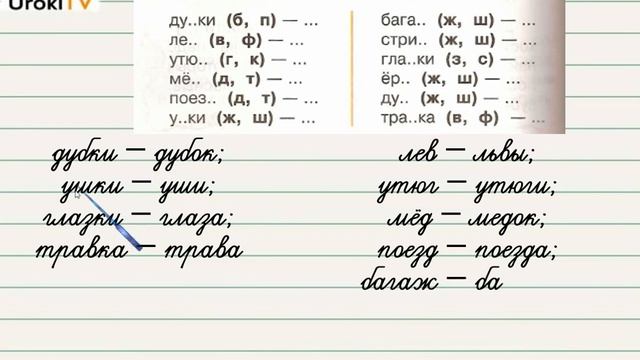 UrokiTV
ду..ки (б, п) — ...
ле.. (в, ф) — ...
утю.. (г, к) — ...
мё.. (д, т) — ...
поез.. (д, т) — ...
у..ки (ж, ш) — ...
бага.. (ж, ш) — ...
стри.. (ж, ш) — ...
гла..ки (з, с) — ...
ёр.. (ж, ш) — ...
ду.. (ж, ш) — ...
тра..ка (в, ф) — ...
дубки — дубок;
ушки — уши;
глазки — глаза;
травка — трава
лев — львы;
утюг — утюги;
мёд — медок;
поезд — поезда;
багаж — ба